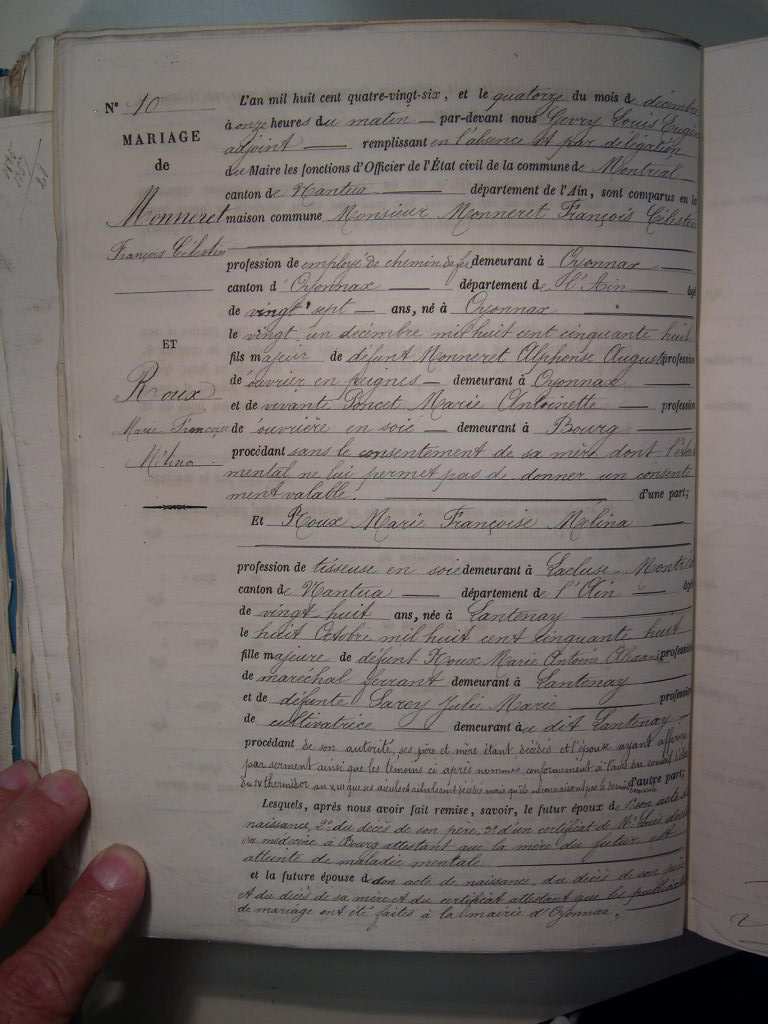 N° 10
MARIAGE
de
Monneret
François Célestin
ET
Roux
Marie Françoise
Mélina
L'an mil huit cent quatre-vingt-six, et le quatorze du mois de décembre
à onze heures du matin — par-devant nous Gevry Louis Eugène
adjoint — remplissant en l'absence et par délégation
du Maire les fonctions d'Officier de l'État civil de la commune de Montréal
canton de Nantua — département de l'Ain, sont comparus en la
maison commune Monsieur Monneret François Célestin
profession de employé de chemin de fer demeurant à Oyonnax —
canton d'Oyonnax — département de l'Ain — âgé
de vingt sept — ans, né à Oyonnax —
le vingt un décembre mil huit cent cinquante huit
fils majeur de défunt Monneret Alphonse Auguste profession
de ouvrier en peignes — demeurant à Oyonnax —
et de vivante Poncet Marie Antoinette — profession
de ouvrière en soie — demeurant à Bourg —
procédant sans le consentement de sa mère dont l'état
mental ne lui permet pas de donner un consente
ment valable. — d'une part;
Et Roux Marie Françoise Mélina —
profession de tisseuse en soie demeurant à Lacluse Montré
canton de Nantua — département de l'Ain — âgée
de vingt huit ans, née à Lantenay —
le huit Octobre mil huit cent cinquante huit
fille majeure de défunt Roux Marie Antoine profession
de maréchal ferrant demeurant à Lantenay
et de défunte Julie Marie — profession
de cultivatrice — demeurant à dit Lantenay —
procédant de son autorité, ses père et mère étant décédés et l'époux ayant affirmé
par serment ainsi que les témoins ci après nommés conformément à l'avis du conseil d'état
du IV thermidor an XIII que ses aïeuls et aïeules sont décédés mais qu'ils d'autre part;
Lesquels, après nous avoir fait remise, savoir, le futur époux de 1° son acte de
naissance, 2° du décès de son père, 3° d'un certificat de Mr Louis
médecin à Bourg attestant que la mère du futur est
atteinte de maladie mentale
et la future épouse de son acte de naissance, du décès de son père
et du décès de sa mère et du certificat attestant que les publicat
de mariage ont été faites à la mairie d'Oyonnax.